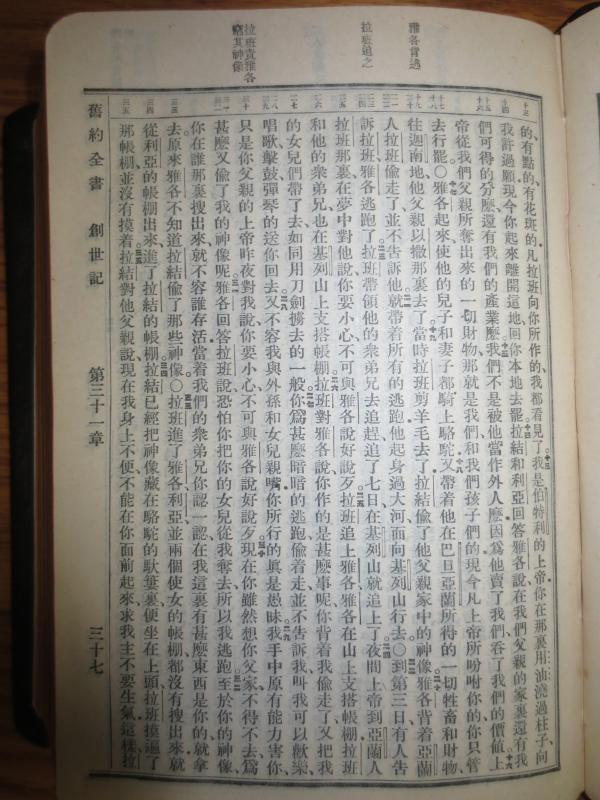 雅各背逃
拉班追之
拉班責雅各
竊其神像
的有點的有花斑的凡拉班向你所作的我都看見了我是伯特利的上帝你在那裏用油澆過柱子向
我許過願現今你起來離開這地回你本地去罷拉結和利亞回答雅各說在我們父親的家裏還有我
們可得的分麽還有我們的產業麽我們不是被他當作外人麽因爲他賣了我們吞了我們的價值上
帝從我們父親所奪出來的一切財物那就是我們和我們孩子們的現今凡上帝所吩咐你的你只管
去行罷○雅各起來使他的兒子和妻子都騎上駱駝又帶着他在巴旦亞蘭所得的一切牲畜和財物
往迦南地他父親以撒那裏去了當時拉班剪羊毛去了拉結偷了他父親家中的神像雅各背着亞蘭
人拉班偷走了並不告訴他就帶着所有的逃跑他起身過大河面向基列山行去○到第三日有人告
訴拉班雅各逃跑了拉班帶領他的衆弟兄去追趕追了七日在基列山就追上了夜間上帝到亞蘭人
拉班那裏在夢中對他說你要小心不可與雅各說好說歹拉班追上雅各雅各在山上支搭帳棚拉班
和他的衆弟兄也在基列山上支搭帳棚拉班對雅各說你作的是甚麽事呢你背着我偷走了又把我
的女兒們帶了去如同用刀劍擄去的一般你爲甚麽暗暗的逃跑偷着走並不告訴我叫我可以歡樂
唱歌擊鼓彈琴的送你回去又不容我與外孫和女兒親嘴你所行的眞是愚昧我手中原有能力害你
只是你父親的上帝昨夜對我說你要小心不可與雅各說好說歹現在你雖然想你父家不得不去爲
甚麽又偷了我的神像呢雅各回答拉班說恐怕你把你的女兒從我奪去所以我逃跑至於你的神像
你在誰那裏搜出來就不容誰存活當着我們的衆弟兄你認一認在我這裏有甚麽東西是你的就拿
去原來雅各不知道拉結偷了那些神像○拉班進了雅各利亞並兩個使女的帳棚都沒有搜出來就
從利亞的帳棚出來進了拉結的帳棚拉結已經把神像藏在駱駝的馱簍裏便坐在上頭拉班摸遍了
那帳棚並沒有摸着拉結對他父親說現在我身上不便不能在你面前起來求我主不要生氣這樣拉
舊約全書 創世記 第三十一章 三十七